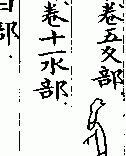 卷五夊部
卷十一水部
部